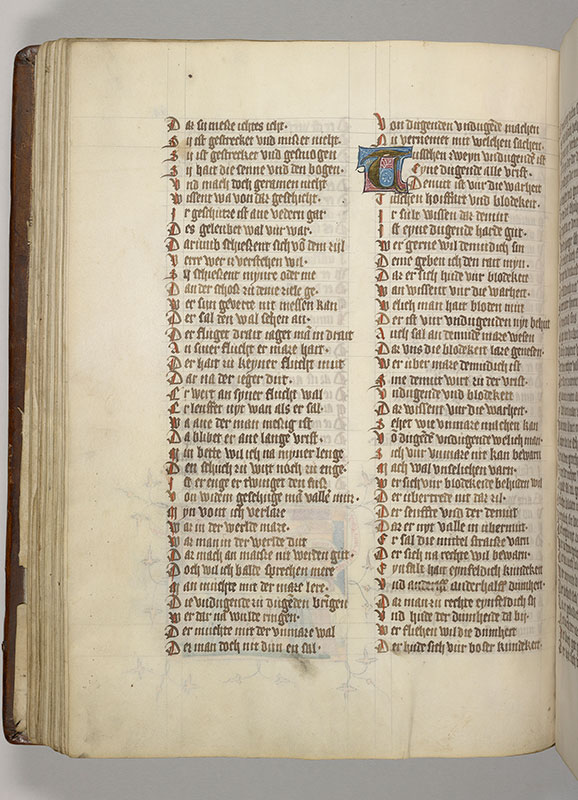 Dar si meste ichtes icht.
Si ist gestrecket vnd mister nicht.
Si ist gestrecket vnd gesmogen
Si hait die senne vnd den bogen.
Vnd mach doch geramen nicht
Wissent wa von daz geschicht.
Ir geschutze ist ane vedern gar
Des geleubet wal vur war.
Dar vmb schiessent sich võ dem zijl
Verre wer iz verstehen wil.
Si schiessent mynre oder me
Dan der schoß zu deme ziele ge.
Wer sijn geverte nit messen kan
Der sal den wal sehen an.
Der flinget drait iaget mã in drait
An siner flucht er maze hait.
Der hait zu keyner flucht mut
Dar na der ieger dut.
Er wert an syner flucht wal
Er leuffet nyt wan als er sal.
Wa ane der man mesig ist
Da blibet er ane lange vrist.
Min bette wil ich na myner lenge
Den schuch zu wijt noch zu enge.
Ist er enge er twinget den fuß
Von widem geschuge mã vallẽ muz.
Myn vort ich verlaze
Waz in der werlde maze.
Waz man in der werlde dut
Daz mach an maeße nit werden gut.
Doch wil ich balde sprechen mere
Man muchte mit der maze lere.
Die vndugende zu dugẽden brẽgen
Wer dar na wulde ringen.
Der muchte mit der vnmaze wal
Dez man doch nit dun en sal.
Von dugenden vndugẽde machen
Nu vernemet mit welchen sachen.
Tusschen zweyn vndugende ist
Eyne dugende alle vrist.
Demut ist vur die warheit
Tusschen hoiffart vnd blodekeit.
Ir sule wissen daz demut
Ist eyne dugende harde gut.
Wer gerne wil demudich sin
Deme geben ich den rait myn.
Daz er sich hude vur blodekeit
Wan wissent vur die warheit.
Welich man hait bloden mut
Der ist vur vndugenden nyt behut
Auch sal an demude maze wesen
Daz vns die blodekeit laze genesen.
Wer vber maze demudich ist
Sine demut wirt zu der vrist.
Vndugende vnd blodekeit
Daz wissent vur die warheit.
Sehet wie vnmaze machen kan
Võ dugede vndugende welich man.
Sich vur vnmaze nit kan bewarn
Mach wal vnselichen varn.
Wer sich vur blodekeide behuden wil
Der vbertrede nit daz zil.
Der senffte vnd der demut
Daz er nyt valle in vbermut.
Er sal die mittel straisse varn
Der sich na rechte wil bewarn.
Eyn stille hait eynfeldich kundekeit
Vnd anderhalff dumheit.
Daz man zu rechte eynfeldich si
Vnd hude der dumheide da bij.
Wer fliehen wil die dumheit
Der hude sich vur boser kundekeit.